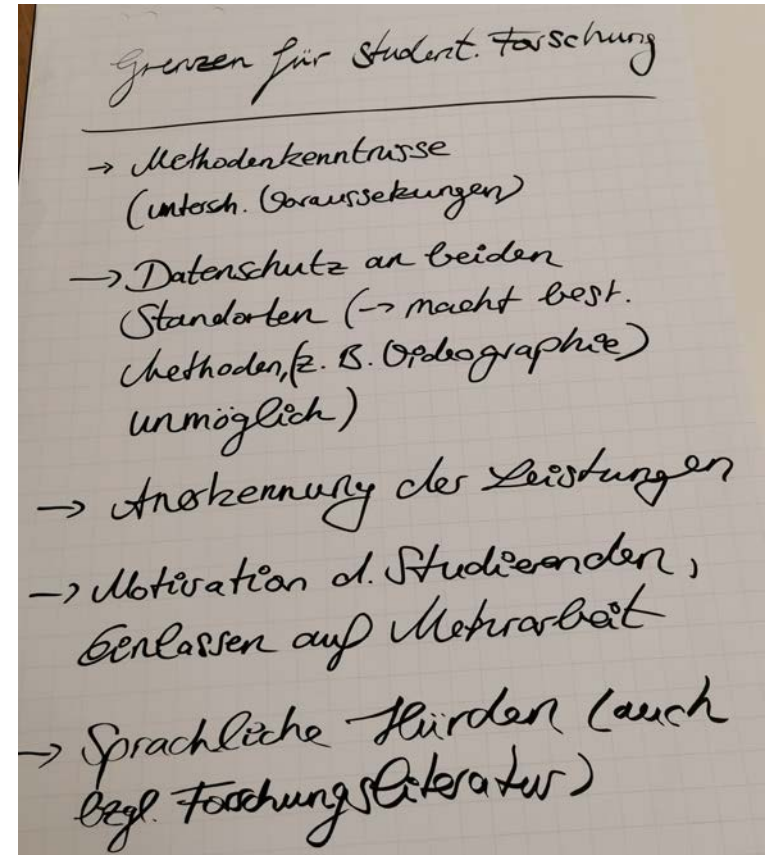 Grenzen für student. Forschung
→ Methodenkenntnisse
(untersch. Voraussetzungen)
→ Datenschutz an beiden
Standorten (→ macht best.
Methoden, (z. B. Videographie)
unmöglich)
→ Anerkennung der Leistungen
→ Motivation d. Studierenden,
Einlassen auf Mehrarbeit
→ Sprachliche Hürden (auch
bzgl. Forschungsliteratur)